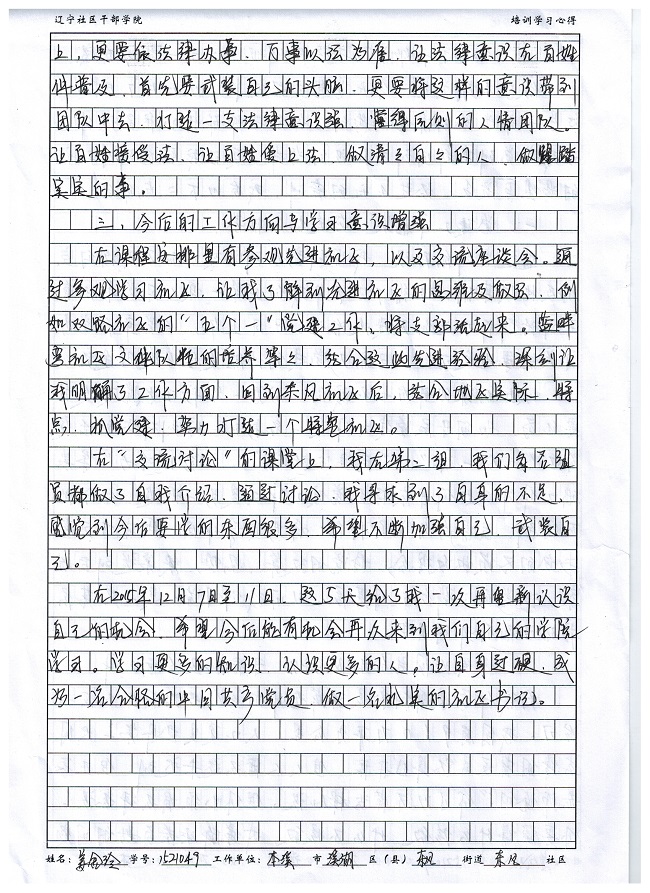 辽宁社区干部学院 培训学习心得
上,更要依法律办事,万事以法为准,让法律意识在百姓
们普及,首先要武装自己的头脑,更要将这样的意识带到
团队中去,打造一支法律意识强,懂得应处的人情团队。
让百姓接受法,让百姓爱上法,做清清白白的人,做踏踏
实实的事。
三、今后的工作方向与学习意识增强
在课程安排里有参观先进社区,以及交流座谈会。通
过参观学习社区,让我了解到先进社区的思维及做法,例
如双路社区的“五个一”党建工作,将支部活起来。
社区文体队伍的培养等等,结合这些先进经验,深刻让
我明确了工作方面,回到东风社区后,结合地区实际,特
点,抓党建,努力打造一个特色社区。
在“交流讨论”的课堂上,我在第二组,我们每名组
员都做了自我介绍,通过讨论,我寻求到了自身的不足,
感觉到今后要学的东西很多,希望不断加强自己,武装自
己。
在2015年12月7日至11日,这5天给了我一次再重新认识
自己的机会,希望今后能有机会再次来到我们自己的学院
学习。学习更多的知识,认识更多的人。让自身过硬,成
为一名合格的中国共产党员,做一名扎实的社区书记。
姓名: 姜金玲 学号:1521049 工作单位: 本溪 市 溪湖 区(县) 东风 街道 东风 社区